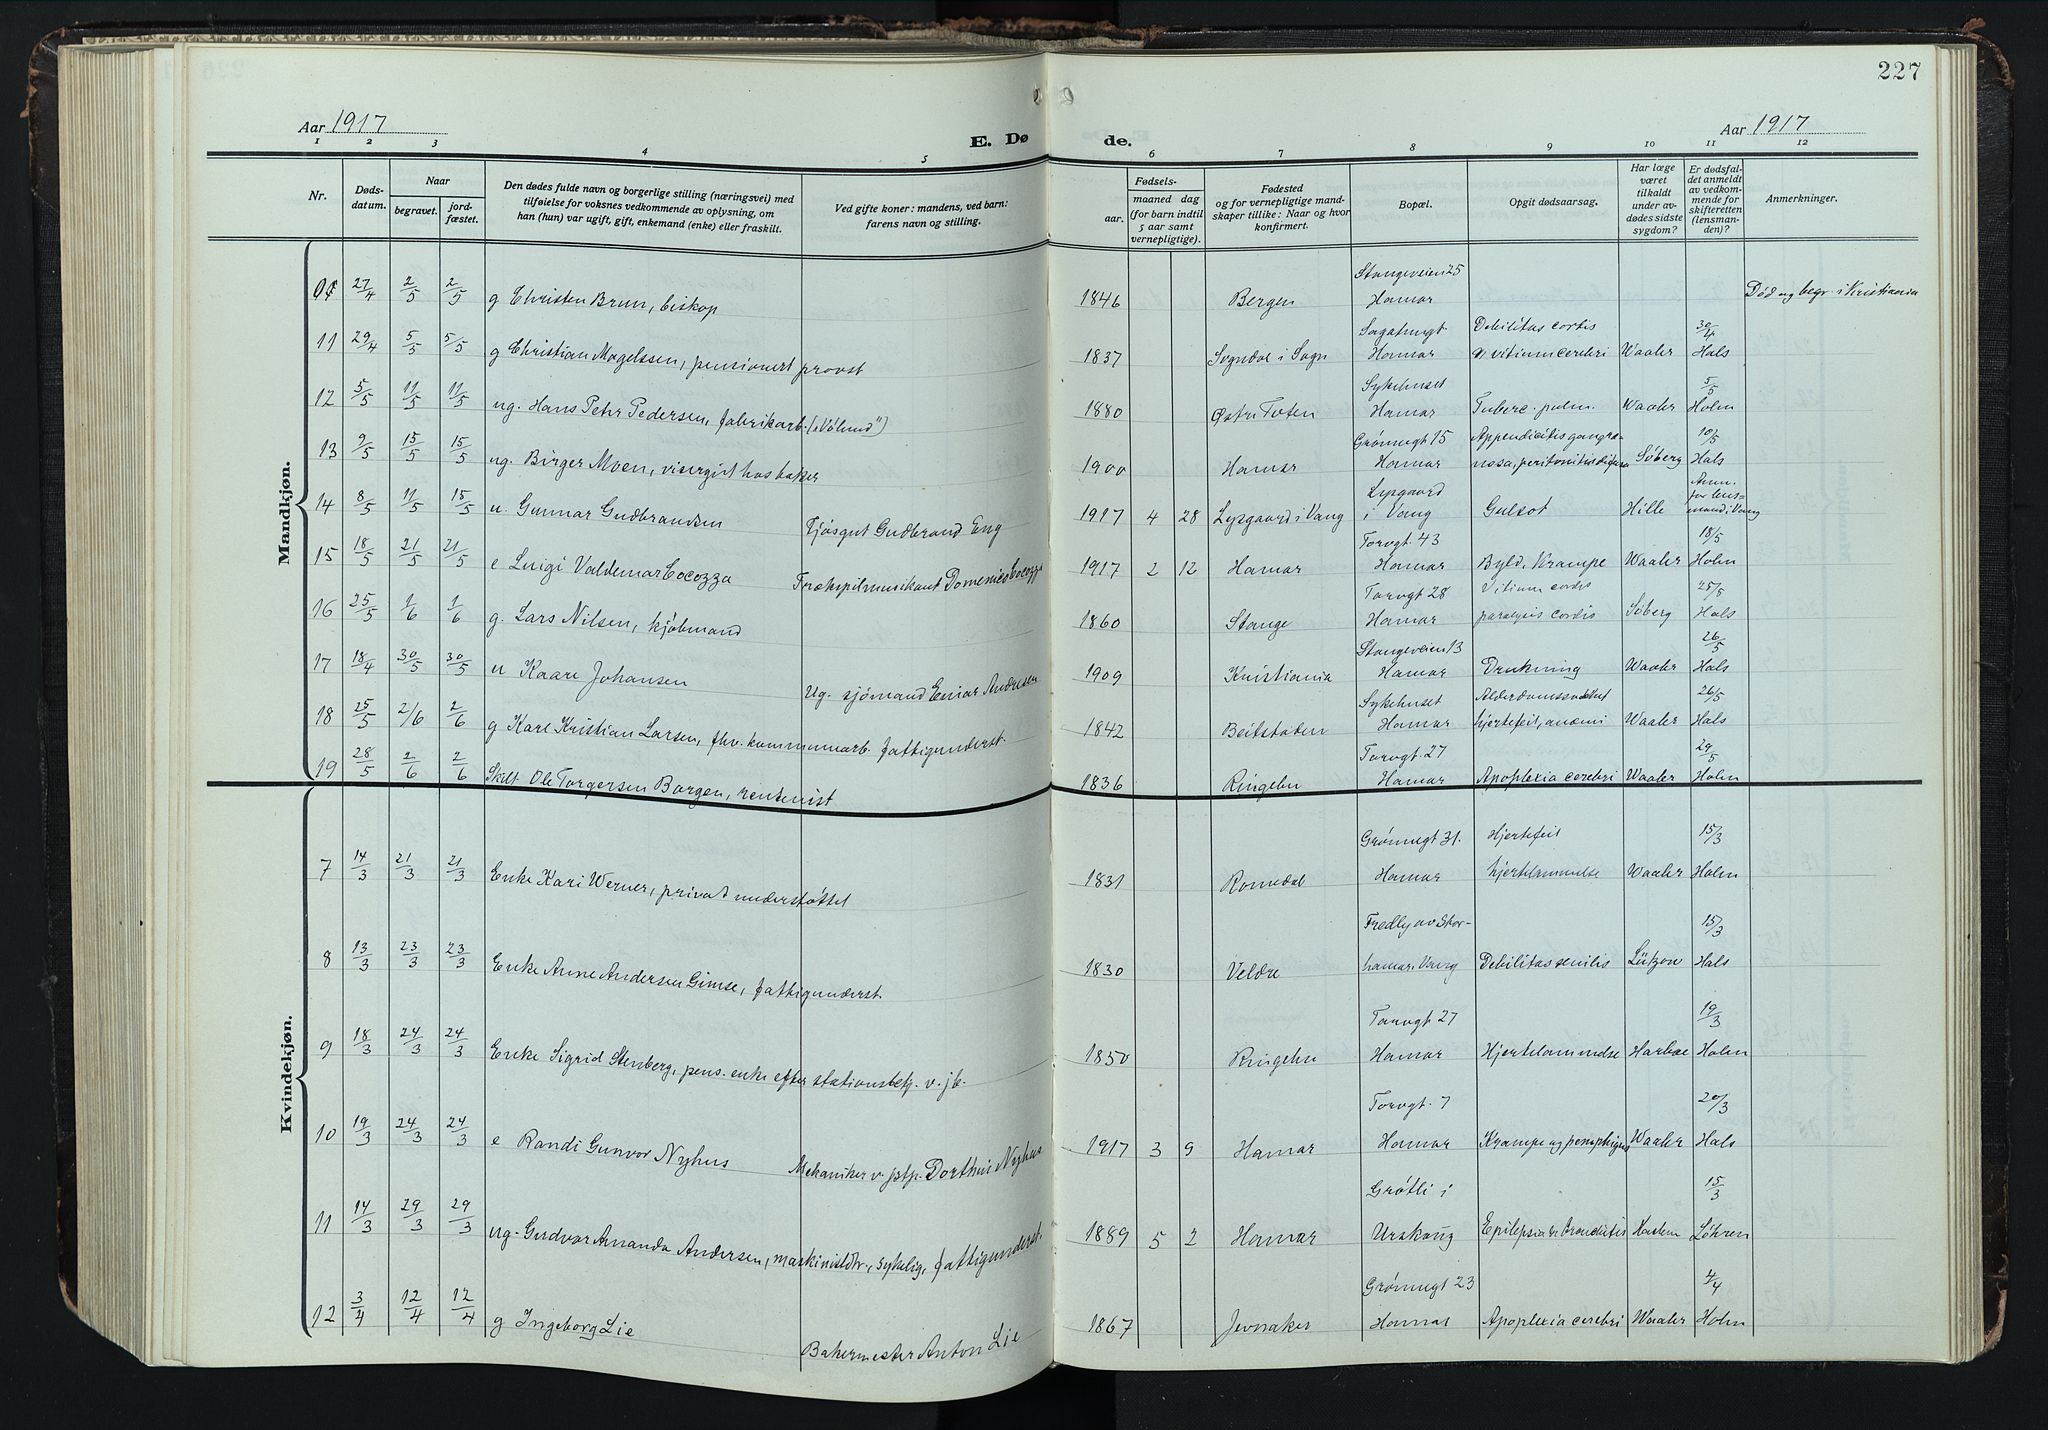 227
Aar 1917
E. Dø
de.
Aar 1917
1 2 3 4 5 6 7 8 9 10 11 12
Nr.
Døds-
datum.
Naar
begravet.
jord-
fæstet.
Den dødes fulde navn og borgerlige stilling (næringsvei) med
tilføielse for voksnes vedkommende av oplysning, om
han (hun) var ugift, gift, enkemand (enke) eller fraskilt.
Ved gifte koner: mandens, ved barn:
farens navn og stilling.
Fødsels-
aar.
maaned dag
(for barn indtil
5 aar samt
vernepligtige).
Fødested
og for vernepligtige mand-
skaper tillike: Naar og hvor
konfirmert.
Bopæl.
Opgit dødsaarsag.
Har læge
været
tilkaldt
under av-
dødes sidste
sygdom?
Er dødsfal-
det anmeldt
av vedkom-
mende for
skifteretten
(lensman-
den)?
Anmerkninger.
Mandkjøn.
27/4 2/5 2/5 g Christen Brun, biskop 1846 Bergen Stangeveien 25 Hamar Død og begr. i Kristiania
11 29/4 5/5 5/5 g Christian Magelssen, pensionert provst 1837 Sogndal i Sogn Hamar Debilitas cordis vitium cerebri Waaler 30/4 Hals
12 5/5 11/5 11/5 ug. Hans Petr Pedersen, fabrikarb. ("Vølund") 1880 Østre Toten Sykehuset Hamar Tuberc. pulm. Waaler 5/5 Holm
13 9/5 15/5 15/5 ug. Birger Moen, visergut hos baker 1900 Hamar Grønnegt 15 Hamar Appendicitis gangræ-
nosa, peritonitis diffusa Søberg 10/5 Hals
14 8/5 11/5 15/5 u. Gunnar Gudbrandsen Fjøsgut Gudbrand Eng 1917 4 28 Lysgaard i Vang Lysgaard i Vang Gulsot Hille Anm. for lens-
mand i Vang
15 18/5 21/5 21/5 e Luigi Valdemar Cocozza Trækspilmusikant Domenico Cocozza 1917 2 12 Hamar Torvgt. 43 Hamar Byld, Krampe Waaler 18/5 Holm
16 25/5 1/6 1/6 g. Lars Nilsen, kjøbmand 1860 Stange Torvgt 28 Hamar Vitium cordis paralysis cordis Søberg 25/5 Hals
17 18/4 30/5 30/5 u Kaare Johansen Ug. sjømand Einar Andresen 1909 Kristiania Stangeveien 13 Hamar Drukning Waaler 26/5 Hals
18 25/5 2/6 2/6 g Karl Kristian Larsen, fhv. kommunearb. fattigunderst. 1842 Beitstaden Sykehuset Hamar Alderdomssvakhet hjertefeil, anæmi Waaler 26/5 Hals
19 28/5 2/6 2/6 Skilt Ole Torgersen Borgen, rentenist 1836 Ringebu Torvgt. 27 Hamar Apoplexia cerebri Waaler 29/5 Holm
Kvindekjøn.
7 14/3 21/3 21/3 Enke Kari Werner, privat understøttet 1831 Romedal Grønnegt 31. Hamar Hjertefeil hjertelammelse Waaler 15/3 Holm
8 13/3 23/3 23/3 Enke Anne Andersen Gimse, fattigunderst. 1830 Veldre Fredly av Stor-
hamar, Vang Debilitas senilis Lützow 15/3 Hals
9 18/3 24/3 24/3 Enke Sigrid Stenberg, pens. enke efter stationsbetj. v. jb. 1850 Ringebu Torvgt 27 Hamar Hjertelammelse Harboe 19/3 Holm
10 19/3 24/3 24/3 e Randi Gunvor Nyhus Mekaniker v. jstp. Dorthus Nyhus 1917 3 9 Hamar Torvgt. 7 Hamar Krampe og pemphigus Waaler 20/3 Hals
11 14/3 29/3 29/3 ug. Gudvor Amanda Andersen, maskinistdtr., sykelig, fattigunderst. 1889 5 2 Hamar Grøtli i Urskoug Epilepsia & Bronchitis 15/3 Løhren
12 3/4 12/4 12/4 g Ingeborg Lie Bakermester Anton Lie 1867 Jevnaker Grønnegt 23 Hamar Apoplexia cerebri Waaler 4/4 Holm